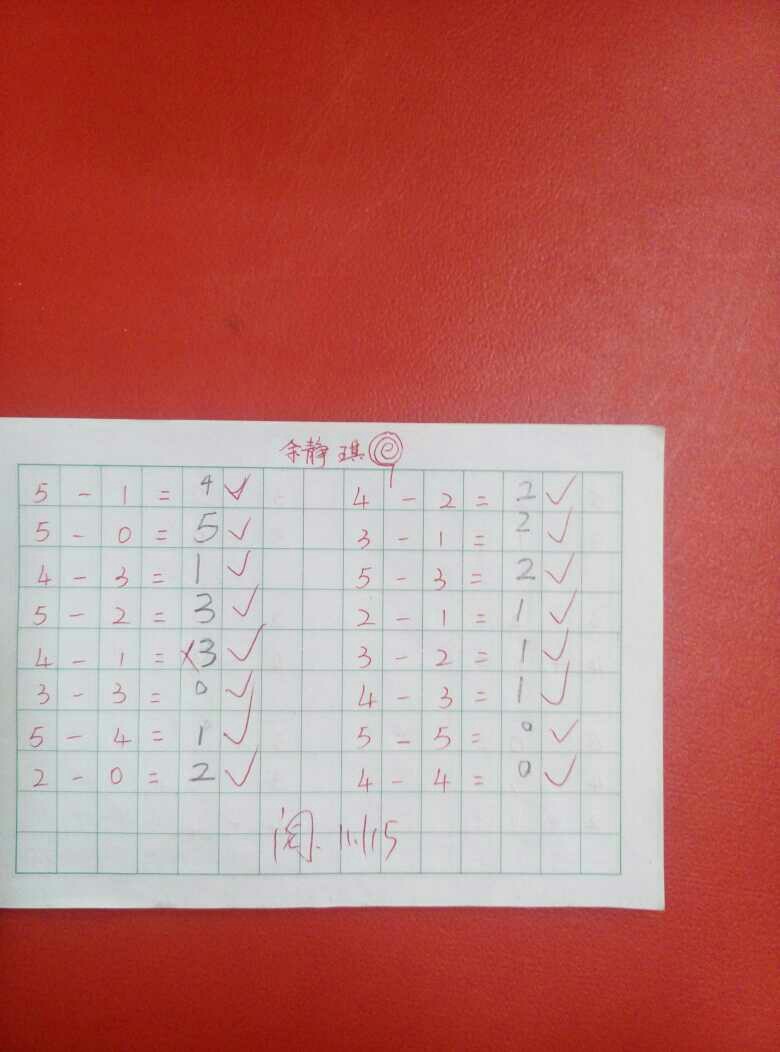 余静琪
5 - 1 = 4 ✓ 4 - 2 = 2 ✓
5 - 0 = 5 ✓ 3 - 1 = 2 ✓
4 - 3 = 1 ✓ 5 - 3 = 2 ✓
5 - 2 = 3 ✓ 2 - 1 = 1 ✓
4 - 1 = ×3 ✓ 3 - 2 = 1 ✓
3 - 3 = 0 ✓ 4 - 3 = 1 ✓
5 - 4 = 1 ✓ 5 - 5 = 0 ✓
2 - 0 = 2 ✓ 4 - 4 = 0 ✓
阅. 11.15